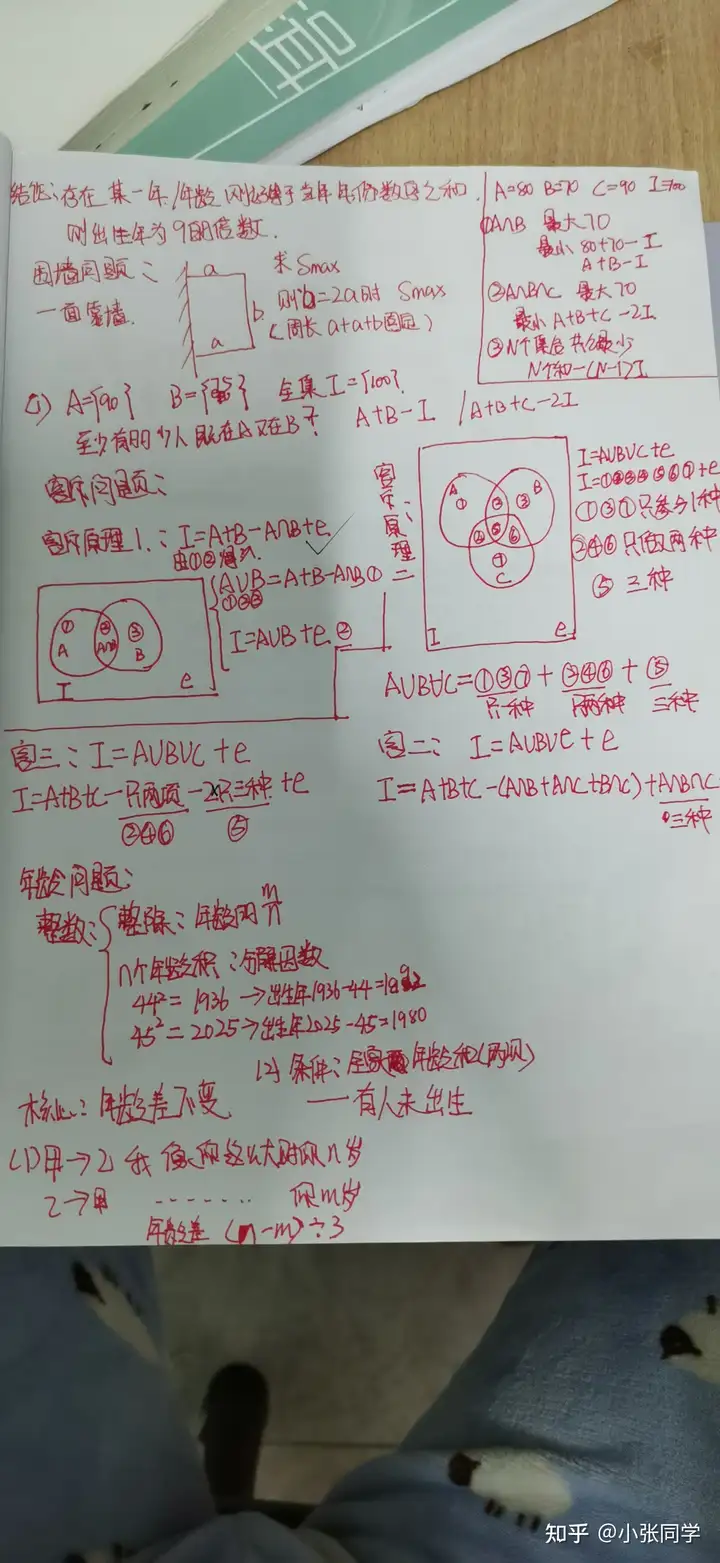 结论：存在某一年，年龄刚好等于当年年份数字之和，
则出生年为9的倍数.
围墙问题：
一面靠墙.
a
b
a
求Smax
则b=2a时 Smax
(周长a+a+b固定)
A=80 B=70 C=90 I=100
①A∩B 最大70
最小 80+70-I
A+B-I
②A∩B∩C 最大70
最小 A+B+C-2I
③N个集合共公最少
N个和-(N-1)I
(1) A={90} B={75} 全集I={100}
至少有的少人既在A又在B? A+B-I / A+B+C-2I
容斥问题：
容斥原理1.: I=A+B-A∩B+e
由①②得出.
A∪B=A+B-A∩B ①
①②③
I=A∪B+e. ②
① ② ③
A A∩B B
I e
容斥原理二
A ① ② ③ B
④ ⑤ ⑥
⑦
C
I e
I=A∪B∪C+e
I=①②③④⑤⑥⑦+e
①③⑦只参加1种
②④⑥只做两种
⑤ 三种
A∪B∪C=①③⑦+②④⑥+⑤
只一种 只两种 三种
容三: I=A∪B∪C+e
I=A+B+C-只两项-2只三种+e
②④⑥ ⑤
容二: I=A∪B∪C+e
I=A+B+C-(A∩B+A∩C+B∩C)+A∩B∩C
三种
年龄问题:
整数:
整除: 年龄的m/n
n个年龄积:分解因数
44²=1936→出生年1936-44=1892
45²=2025→出生年2025-45=1980
(2) 条件: 全家年龄和(两项)
——有人未出生
核心: 年龄差不变
(1)甲→乙 我像你这么大时你n岁
乙→甲 ....... 你m岁
年龄差 (n-m)÷3
知乎 @小张同学